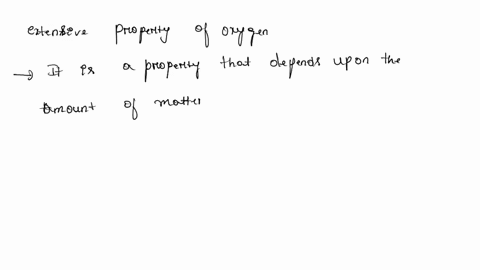 extensive property of oxygen
→ It is a property that depends upon the
amount of matter